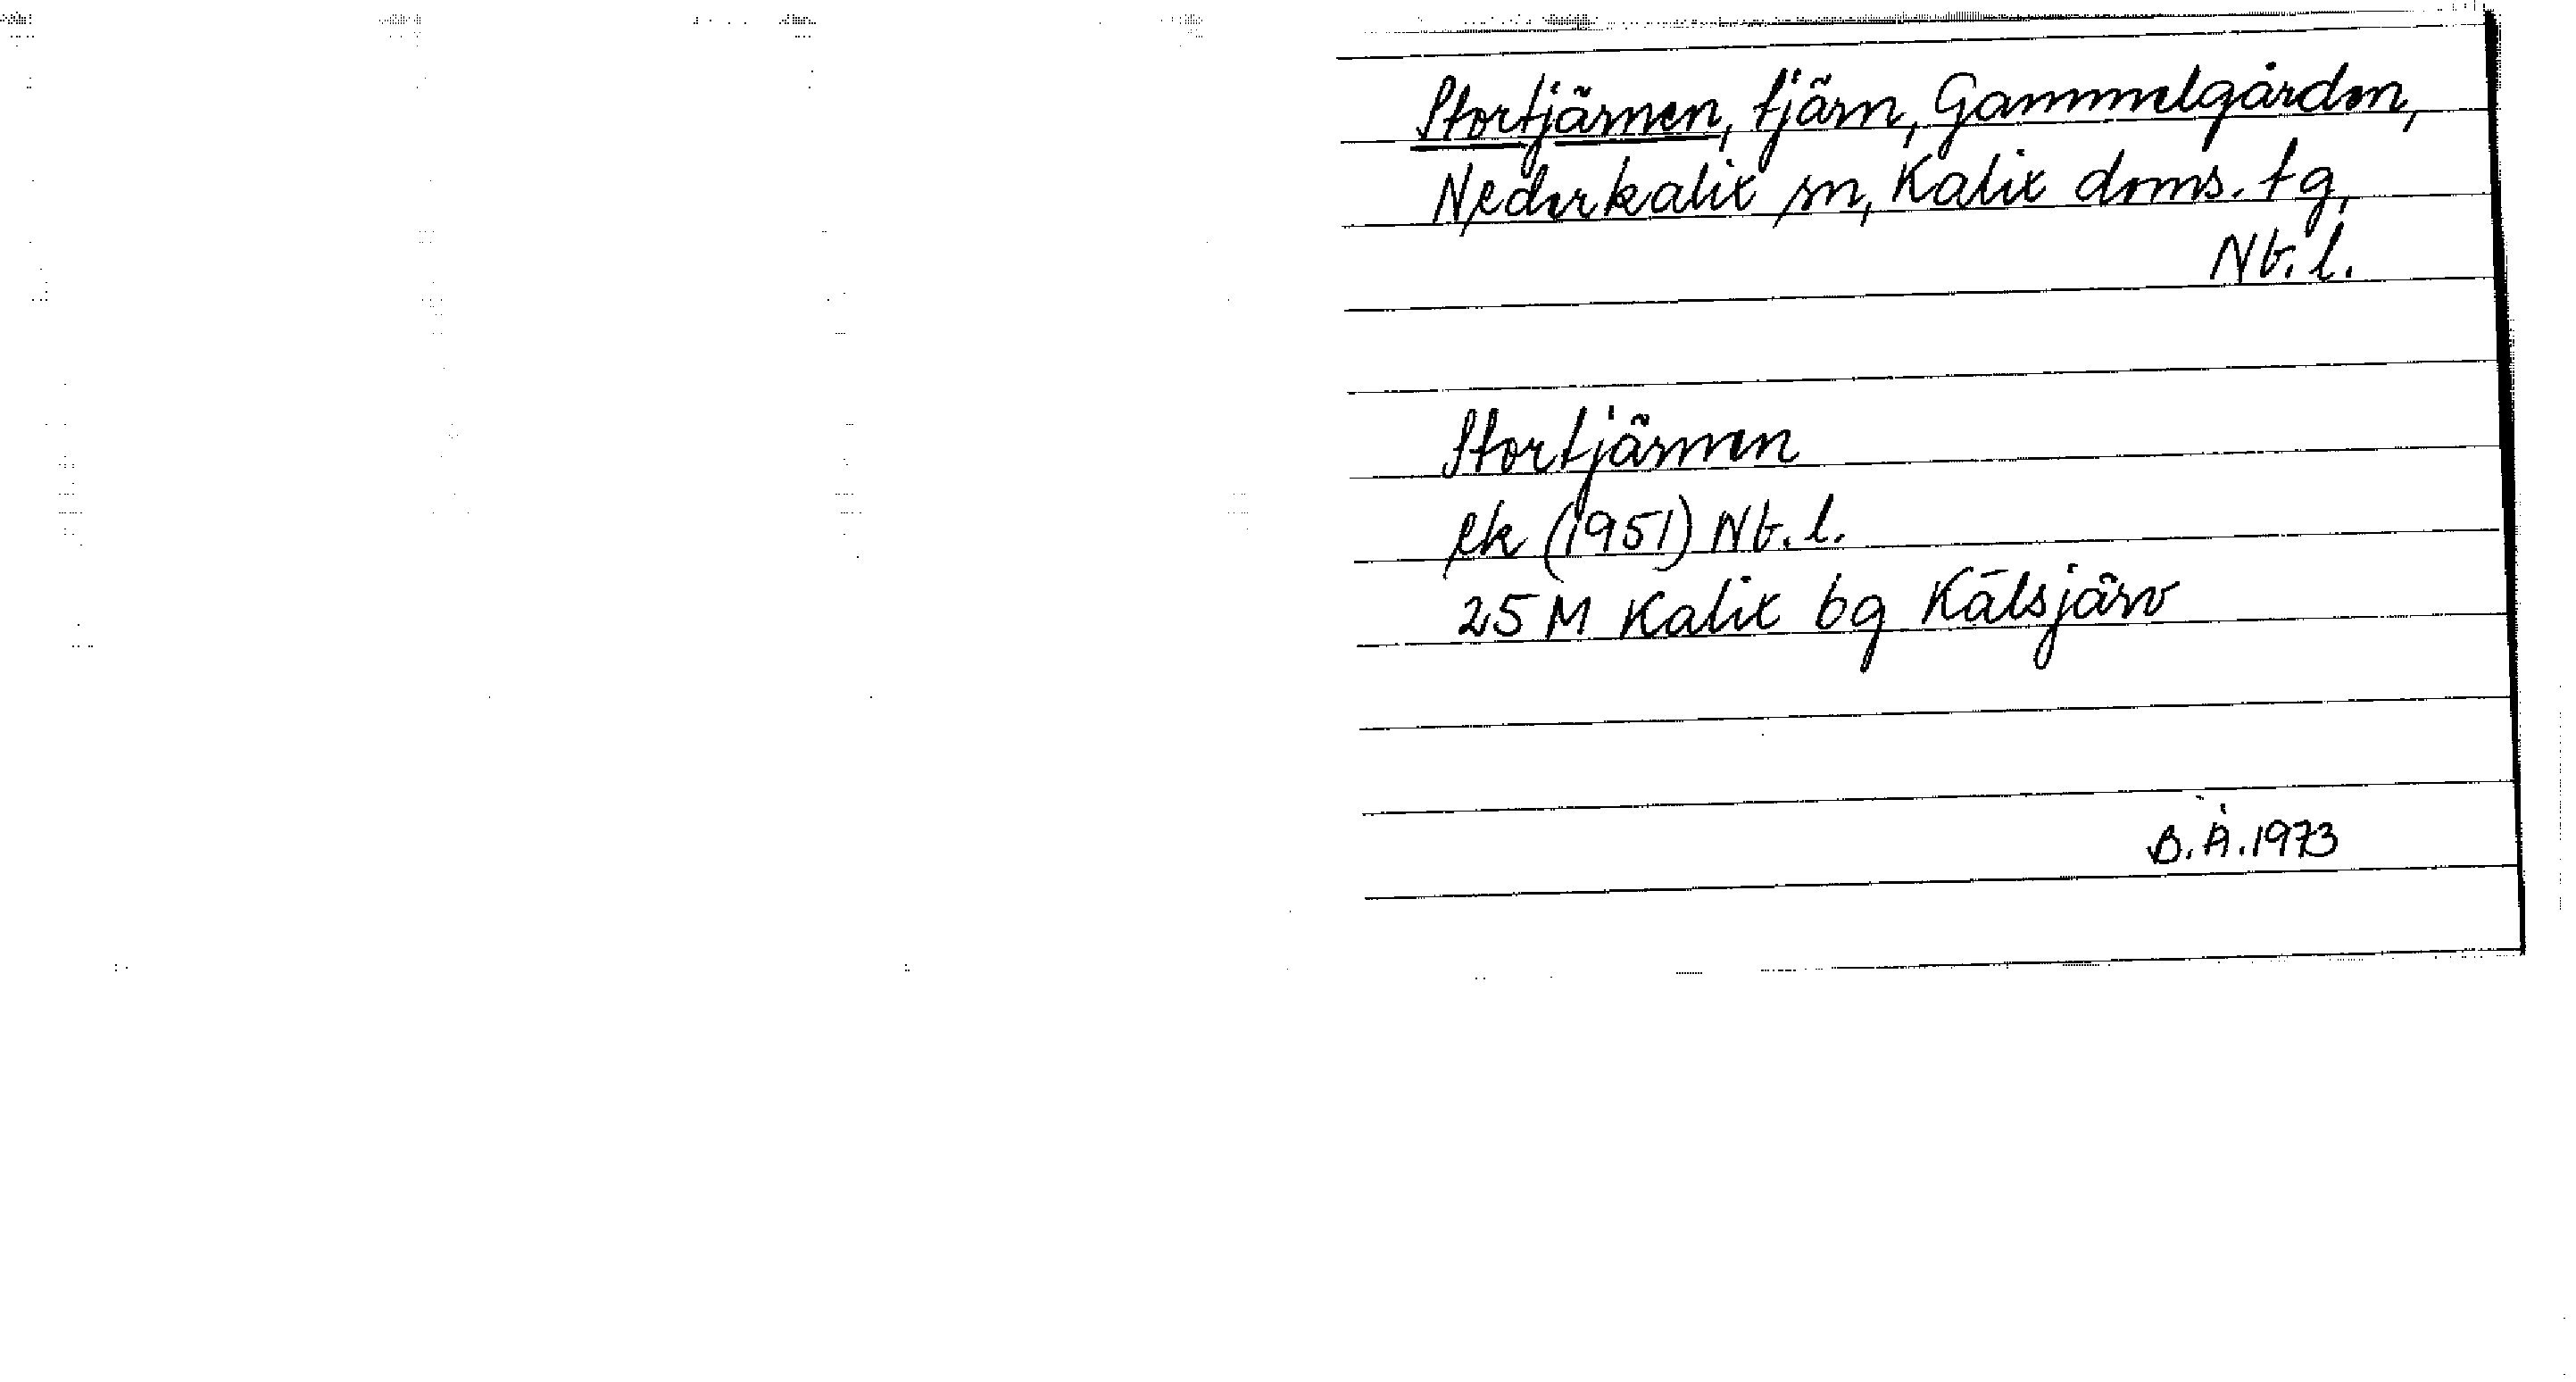 Stortjärnen, tjärn, Gammelgården,
Nederkalix sn, Kalix doms. tg,
Nb. l.
Stortjärnen
ek (1951) Nb. l.
25 M Kalix 6g Kälsjärv
B. Å. 1973